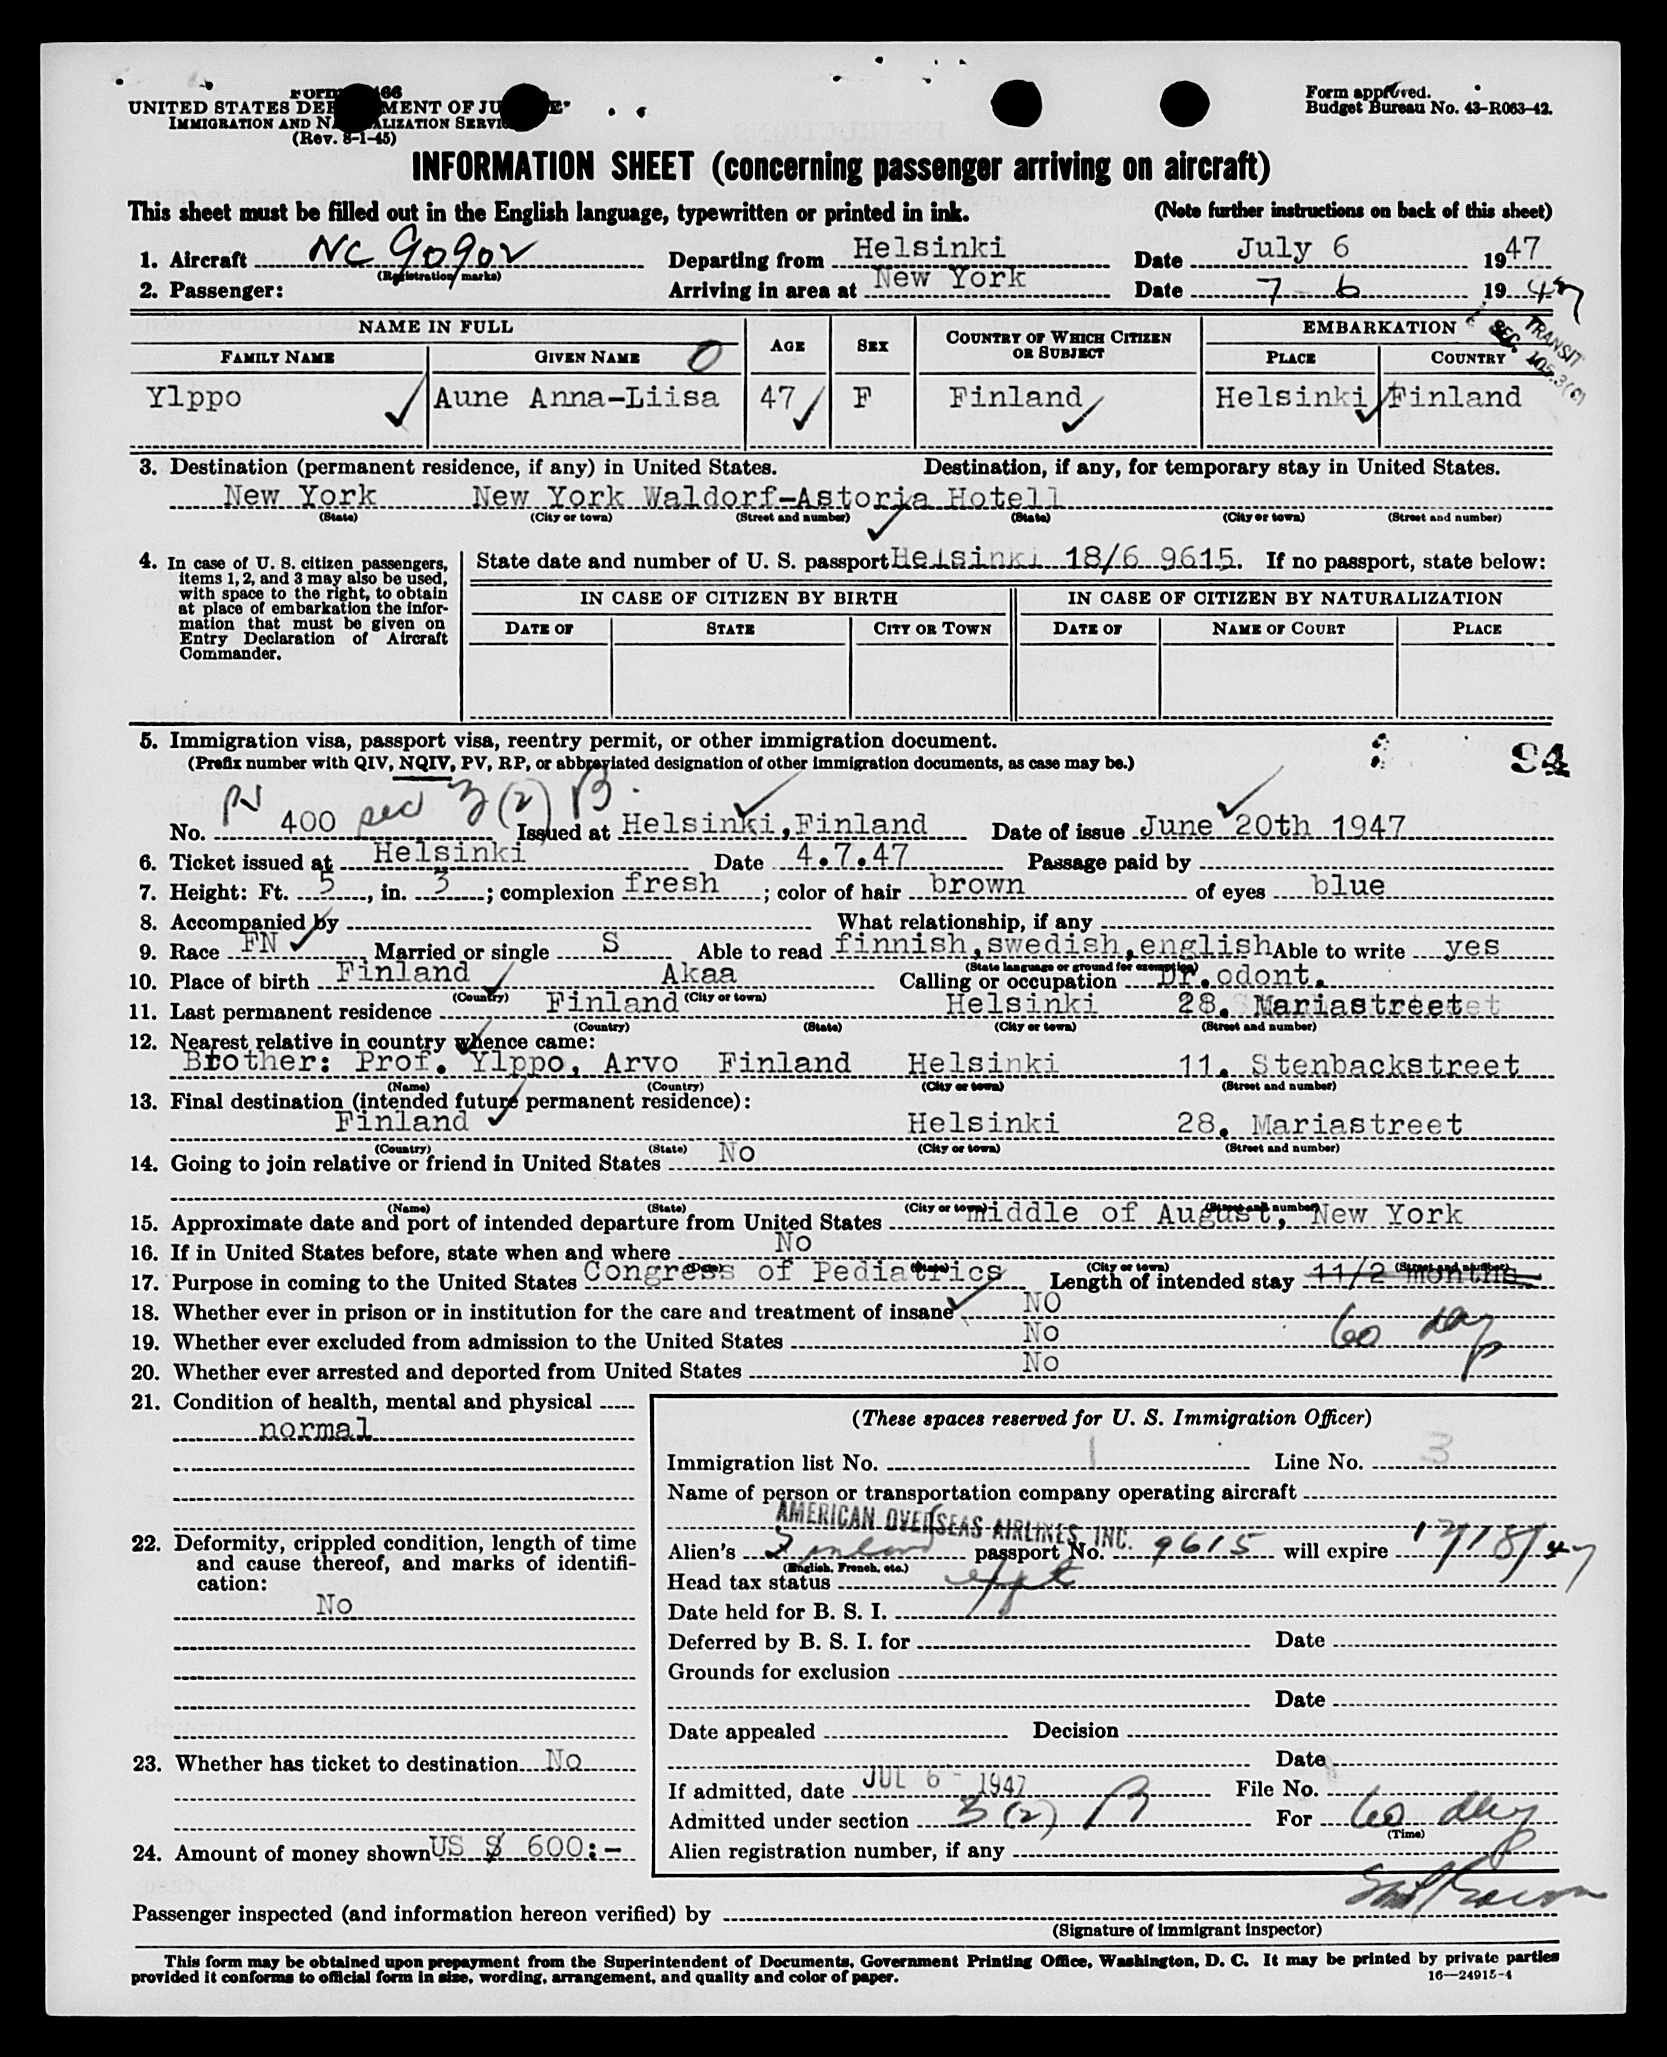 Form 466
UNITED STATES DEPARTMENT OF JUSTICE
IMMIGRATION AND NATURALIZATION SERVICE
(Rev. 8-1-45)
Form approved.
Budget Bureau No. 43-R063-42.
INFORMATION SHEET (concerning passenger arriving on aircraft)
This sheet must be filled out in the English language, typewritten or printed in ink. (Note further instructions on back of this sheet)
1. Aircraft NC 90902 Departing from Helsinki Date July 6 1947
(Registration marks)
2. Passenger: Arriving in area at New York Date 7-6 1947
TRANSIT
SEC. 105.3(c)
NAME IN FULL AGE SEX COUNTRY OF WHICH CITIZEN OR SUBJECT EMBARKATION
FAMILY NAME GIVEN NAME 0 PLACE COUNTRY
Ylppo Aune Anna-Liisa 47 F Finland Helsinki Finland
3. Destination (permanent residence, if any) in United States. Destination, if any, for temporary stay in United States.
New York New York Waldorf-Astoria Hotell
(State) (City or town) (Street and number) (State) (City or town) (Street and number)
4. In case of U. S. citizen passengers, items 1, 2, and 3 may also be used, with space to the right, to obtain at place of embarkation the information that must be given on Entry Declaration of Aircraft Commander.
State date and number of U. S. passport Helsinki 18/6 9615. If no passport, state below:
IN CASE OF CITIZEN BY BIRTH IN CASE OF CITIZEN BY NATURALIZATION
DATE OF STATE CITY OR TOWN DATE OF NAME OF COURT PLACE
5. Immigration visa, passport visa, reentry permit, or other immigration document.
(Prefix number with QIV, NQIV, PV, RP, or abbreviated designation of other immigration documents, as case may be.)
94
No. PV 400 sec 3(2) B. Issued at Helsinki, Finland Date of issue June 20th 1947
6. Ticket issued at Helsinki Date 4.7.47 Passage paid by
7. Height: Ft. 5, in. 3; complexion fresh; color of hair brown of eyes blue
8. Accompanied by What relationship, if any
9. Race FN Married or single S Able to read finnish, swedish, english Able to write yes
(State language or ground for exemption)
10. Place of birth Finland Akaa Calling or occupation Dr. odont.
(Country) (City or town)
11. Last permanent residence Finland Helsinki 28. Mariastreet
(Country) (State) (City or town) (Street and number)
12. Nearest relative in country whence came:
Brother: Prof. Ylppo, Arvo Finland Helsinki 11. Stenbackstreet
(Name) (Country) (City or town) (Street and number)
13. Final destination (intended future permanent residence):
Finland Helsinki 28. Mariastreet
(Country) (State) (City or town) (Street and number)
14. Going to join relative or friend in United States No
(Name) (State) (City or town) (Street and number)
15. Approximate date and port of intended departure from United States middle of August, New York
16. If in United States before, state when and where No
(Date) (State) (City or town) (Street and number)
17. Purpose in coming to the United States Congress of Pediatrics Length of intended stay 11/2 months
18. Whether ever in prison or in institution for the care and treatment of insane NO
60 days
19. Whether ever excluded from admission to the United States No
20. Whether ever arrested and deported from United States No
21. Condition of health, mental and physical
normal
22. Deformity, crippled condition, length of time and cause thereof, and marks of identification:
No
23. Whether has ticket to destination No
24. Amount of money shown US $ 600:-
(These spaces reserved for U. S. Immigration Officer)
Immigration list No. 1 Line No. 3
Name of person or transportation company operating aircraft
AMERICAN OVERSEAS AIRLINES, INC.
Alien's Finland passport No. 9615 will expire 12/18/47
(English, French, etc.)
Head tax status ept
Date held for B. S. I.
Deferred by B. S. I. for Date
Grounds for exclusion
Date
Date appealed Decision
Date
If admitted, date JUL 6 - 1947 File No.
Admitted under section 3(2) B For 60 days
(Time)
Alien registration number, if any
Passenger inspected (and information hereon verified) by
(Signature of immigrant inspector)
This form may be obtained upon prepayment from the Superintendent of Documents, Government Printing Office, Washington, D. C. It may be printed by private parties
provided it conforms to official form in size, wording, arrangement, and quality and color of paper.
16—24915-4